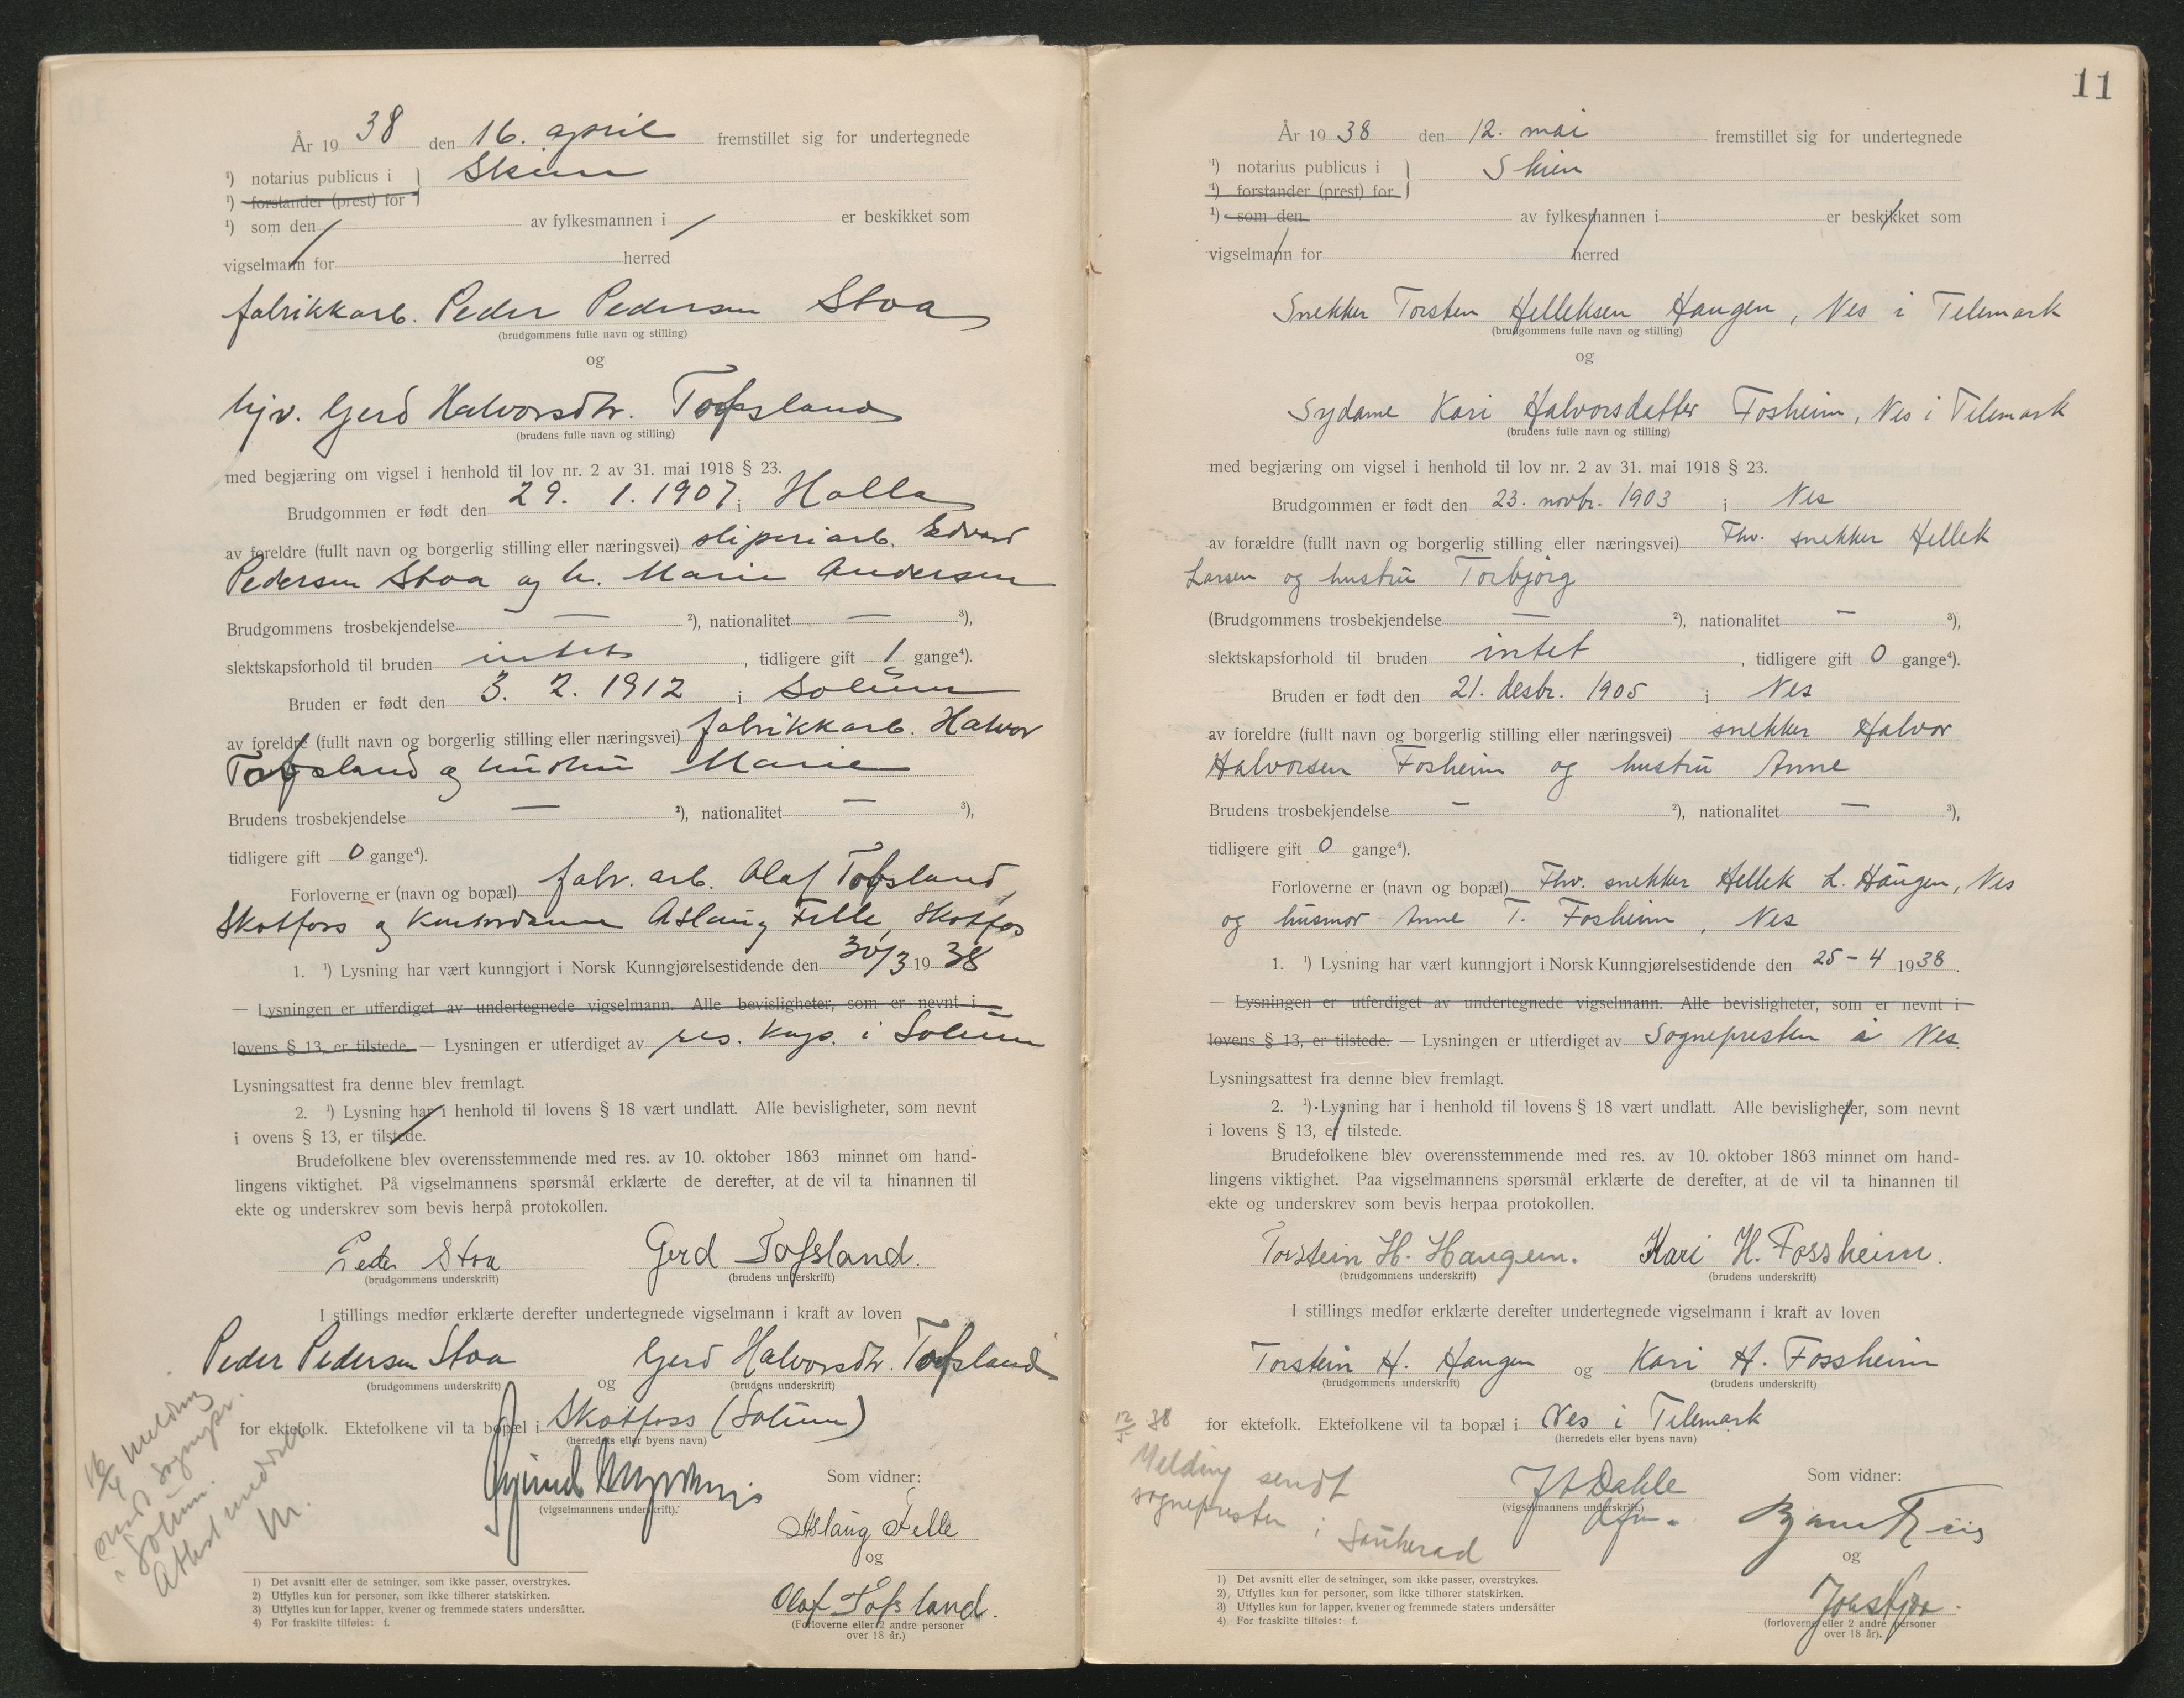 År 19 38 den 16. april fremstillet sig for undertegnede
¹) notarius publicus i } Skien
¹) forstander (prest) for
¹) som den av fylkesmannen i er beskikket som
vigselmann for herred
fabrikkarb. Peder Pedersen Stoa
(brudgommens fulle navn og stilling)
og
hjv. Gerd Halvorsdtr. Tofsland
(brudens fulle navn og stilling)
med begjæring om vigsel i henhold til lov nr. 2 av 31. mai 1918 § 23.
Brudgommen er født den 29. 1. 1907 i Holla
av foreldre (fullt navn og borgerlig stilling eller næringsvei) sliperiarb. Edvard
Pedersen Stoa og h. Marie Andersen
Brudgommens trosbekjendelse — ²), nationalitet — ³),
slektskapsforhold til bruden intet, tidligere gift 1 gange⁴).
Bruden er født den 3. 2. 1912 i Solum
av foreldre (fullt navn og borgerlig stilling eller næringsvei) fabrikkarb. Halvor
Tofsland og hustru Marie
Brudens trosbekjendelse — ²), nationalitet — ³),
tidligere gift 0 gange⁴).
Forloverne er (navn og bopæl) fabr. arb. Olaf Tofsland,
Skotfoss og kontordame Aslaug Felle, Skotfos
1. ¹) Lysning har vært kunngjort i Norsk Kunngjørelsestidende den 30/3 19 38
— Lysningen er utferdiget av undertegnede vigselmann. Alle bevisligheter, som er nevnt i
lovens § 13, er tilstede. — Lysningen er utferdiget av res. kap. i Solum
Lysningsattest fra denne blev fremlagt.
2. ¹) Lysning har i henhold til lovens § 18 vært undlatt. Alle bevisligheter, som nevnt
i ovens § 13, er tilstede.
Brudefolkene blev overensstemmende med res. av 10. oktober 1863 minnet om hand-
lingens viktighet. På vigselmannens spørsmål erklærte de derefter, at de vil ta hinannen til
ekte og underskrev som bevis herpå protokollen.
Peder Stoa Gerd Tofsland.
(brudgommens underskrift) (brudens underskrift)
I stillings medfør erklærte derefter undertegnede vigselmann i kraft av loven
Peder Pedersen Stoa og Gerd Halvorsdtr. Tofsland
(brudgommens underskrift) (brudens underskrift)
for ektefolk. Ektefolkene vil ta bopæl i Skotfoss (Solum)
(herredets eller byens navn)
16/4 melding
sendt sognepr.
i Solum.
Attest meddelt
Som vidner:
(vigselmannens underskrift).
Aslaug Felle
og
Olaf Tofsland.
(Forloverne eller 2 andre personer
over 18 år.)
1) Det avsnitt eller de setninger, som ikke passer, overstrykes.
2) Utfylles kun for personer, som ikke tilhører statskirken.
3) Utfylles kun for lapper, kvener og fremmede staters undersåtter.
4) For fraskilte tilføies: f.
11
År 19 38 den 12. mai fremstillet sig for undertegnede
¹) notarius publicus i } Skien
¹) forstander (prest) for
¹) som den av fylkesmannen i er beskikket som
vigselmann for herred
Snekker Torsten Helleksen Haugen, Nes i Telemark
(brudgommens fulle navn og stilling)
og
Sydame Kari Halvorsdatter Fosheim, Nes i Telemark
(brudens fulle navn og stilling)
med begjæring om vigsel i henhold til lov nr. 2 av 31. mai 1918 § 23.
Brudgommen er født den 23. novbr. 1903 i Nes
av forældre (fullt navn og borgerlig stilling eller næringsvei) Fhv. snekker Hellek
Larsen og hustru Torbjørg
(Brudgommens trosbekjendelse — ²), nationalitet — ³),
slektskapsforhold til bruden intet, tidligere gift 0 gange⁴).
Bruden er født den 21. desbr. 1905 i Nes
av foreldre (fullt navn og borgerlig stilling eller næringsvei) snekker Halvor
Halvorsen Fosheim og hustru Anne
Brudens trosbekjendelse — ²), nationalitet — ³),
tidligere gift 0 gange⁴).
Forloverne er (navn og bopæl) Fhv. snekker Hellek L. Haugen, Nes
og husmor Anne T. Fosheim, Nes
1. ¹) Lysning har vært kunngjort i Norsk Kunngjørelsestidende den 25 - 4 1938.
— Lysningen er utferdiget av undertegnede vigselmann. Alle bevisligheter, som er nevnt i
lovens § 13, er tilstede. — Lysningen er utferdiget av Sognepresten i Nes.
Lysningsattest fra denne blev fremlagt.
2. ¹) Lysning har i henhold til lovens § 18 vært undlatt. Alle bevisligheter, som nevnt
i lovens § 13, er tilstede.
Brudefolkene blev overensstemmende med res. av 10. oktober 1863 minnet om hand-
lingens viktighet. Paa vigselmannens spørsmål erklærte de derefter, at de vil ta hinannen til
ekte og underskrev som bevis herpaa protokollen.
Torstein H. Haugen. Kari H. Fossheim.
(brudgommens underskrift) (brudens underskrift)
I stillings medfør erklærte derefter undertegnede vigselmann i kraft av loven
Torstein H. Haugen og Kari H. Fossheim
(brudgommens underskrift) (brudens underskrift)
for ektefolk. Ektefolkene vil ta bopæl i Nes i Telemark
(herredets eller byens navn)
12/5 38
Melding sendt
sognepresten i Sauherad
Som vidner:
Dahle
(vigselmannens underskrift.)
og
(forloverne eller 2 andre personer
over 18 år).
1) Det avsnitt eller de setninger, som ikke passer, overstrykes.
2), Utfylles kun for personer, som ikke tilhører statskirken.
3) Utfylles kun for lapper, kvener og fremmede staters undersåtter
4) For fraskilte tilføies: f.